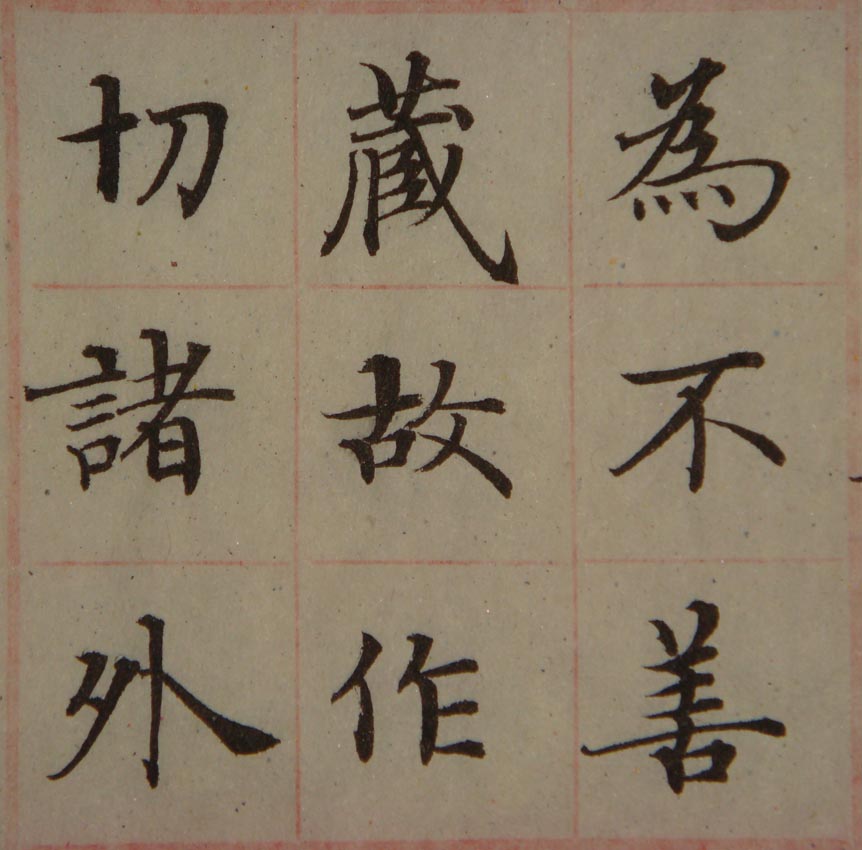 為不善
蔵故作
切諸外